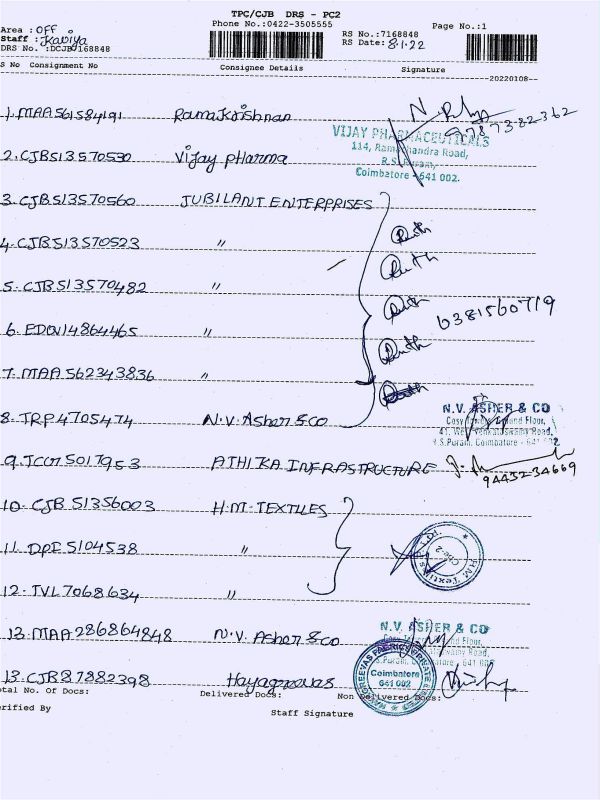 TPC/CJB DRS - PC2
Phone No.:0422-3505555
Page No.:1
Area : OFF
Staff : Kaviya
DRS No. :DCJB7168848
RS No.:7168848
RS Date: 8.1.22
S No Consignment No Consignee Details Signature
20220108
1. MAA561584191 Ramakrishnan N. 9787382362
VIJAY PHARMACEUTICALS
114, Ramachandra Road,
R.S. Puram,
Coimbatore - 641 002.
2. CJB513570530 Vijay pharma
3. CJB513570560 JUBILANT ENTERPRISES
4. CJB513570523 "
5. CJB513570482 "
6381560719
6. EDQ14864465 "
7. MAA562343836 "
8. TRP4705474 N.V. Asher & co
N.V. ASHER & CO
R.S.Puram, Coimbatore - 641 002
9. JCC75017953 ATHIKA INFRASTRUCTURE
9445234669
10. CJB 51356003 H.M. TEXTILES
11. DPI 5104538 "
H.M. Textiles
Cbe-2
12. TVL7068634 "
13. MAA286864848 N.V. Asher & co
N.V. ASHER & CO
13. CJB87882398 Hayagreevas
HAYAGREEVAS FABRICS PRIVATE LIMITED
Coimbatore
641 002
otal No. Of Docs: Delivered Docs: Non Delivered Docs:
erified By
Staff Signature